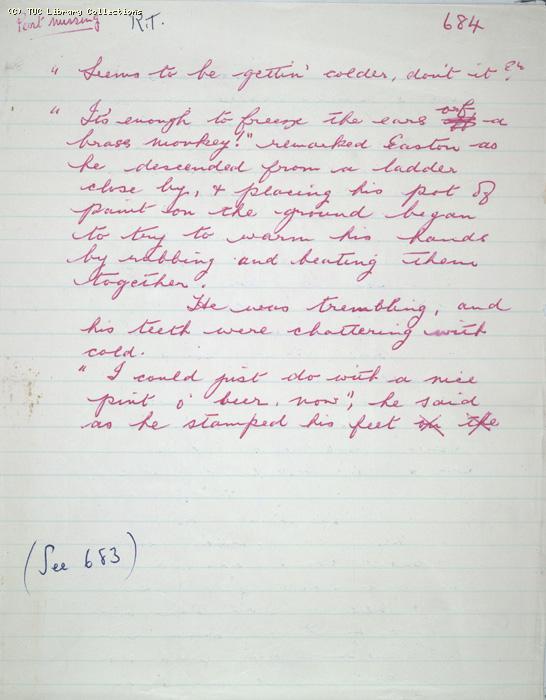 (C) TUC Library Collections
Part missing R.T. 684
" Seems to be gettin' colder, don't it ?"
" It's enough to freeze the ears orf a
brass monkey!" remarked Easton as
he descended from a ladder
close by, & placing his pot of
paint on the ground began
to try to warm his hands
by rubbing and beating them
together.
He was trembling, and
his teeth were chattering with
cold.
" I could just do with a nice
pint o' beer, now", he said
as he stamped his feet on the
(See 683)